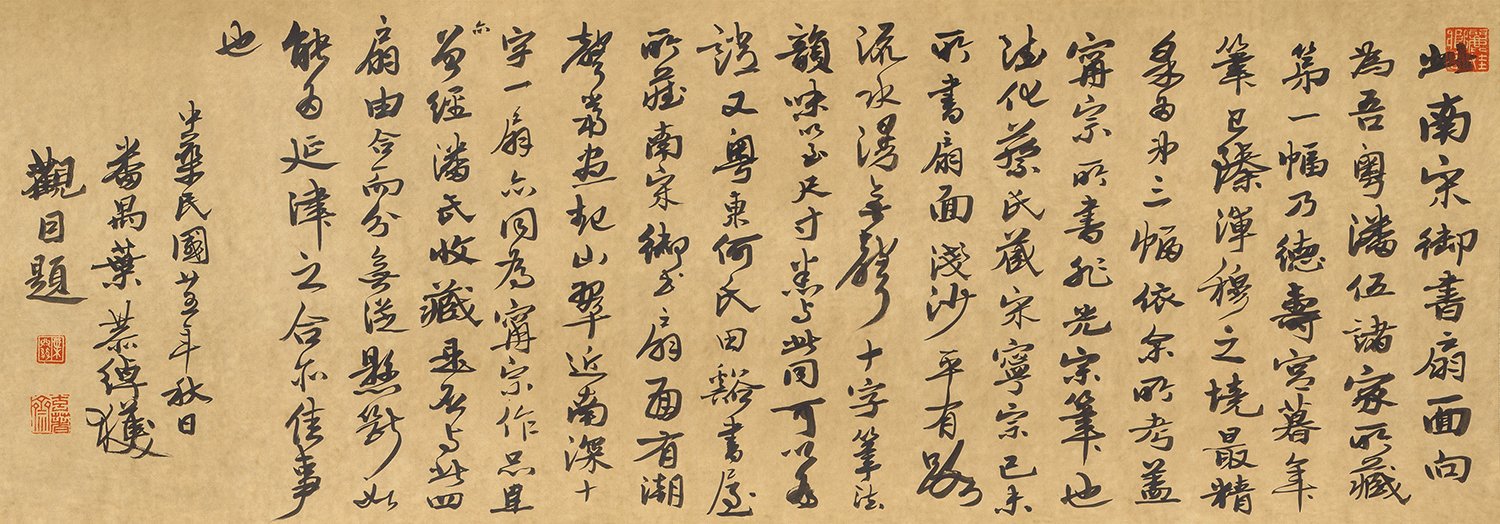 此南宋御書扇面向
為吾粵潘伍諸家所藏
第一幅乃德壽宮暮年
筆已臻渾穆之境最精
美為弟三幅依余所考蓋
甯宗所書非光宗筆也
法化蔡氏藏宋寧宗己未
所書扇面淺沙平有路
流水漫無聲十字筆法
韻味以至尺寸悉与此同可以為
證又粵東何氏田谿書屋
所藏南宋御書扇面有湖
聲當晝起山翠近南深十
字一扇亦同為甯宗作品且
亦曾經潘氏收藏是否与此四
扇由合而分無從懸斷如
能為延津之合亦佳事
也
中華民國廿五年秋日
番禺葉恭綽獲
觀因題